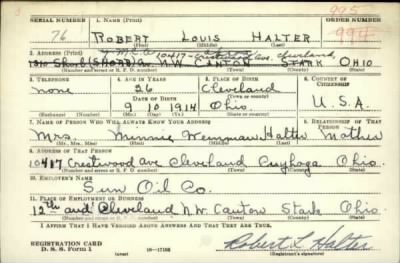 SERIAL NUMBER
1. NAME (Print)
ORDER NUMBER
995
76
ROBERT LOUIS HALTER
994
(First) (Middle) (Last)
2. ADDRESS (Print)
Y.M.C.A. 10417 Crestwood Ave Cleveland,
N.W. CANTON STARK OHIO
3. TELEPHONE
4. AGE IN YEARS
5. PLACE OF BIRTH
6. COUNTRY OF CITIZENSHIP
None
26
Cleveland
(Town or county)
DATE OF BIRTH
9 10 1914
Ohio
U.S.A.
(Exchange) (Number)
(Mo.) (Day) (Yr.)
(State or country)
7. NAME OF PERSON WHO WILL ALWAYS KNOW YOUR ADDRESS
8. RELATIONSHIP OF THAT PERSON
Mrs. Minnie Halter Mother
(Mr., Mrs., Miss) (First) (Middle) (Last)
9. ADDRESS OF THAT PERSON
10417 Crestwood Ave Cleveland Cuyhoga Ohio.
(Number and street or R. F. D. number) (Town) (County) (State)
10. EMPLOYER'S NAME
Sun Oil Co.
11. PLACE OF EMPLOYMENT OR BUSINESS
12th and Cleveland N.W. Canton Stark Ohio
(Number and street or R. F. D. number) (Town) (County) (State)
I AFFIRM THAT I HAVE VERIFIED ABOVE ANSWERS AND THAT THEY ARE TRUE.
REGISTRATION CARD
D. S. S. Form 1
(over)
16-17105
Robert L Halter
(Registrant's signature)